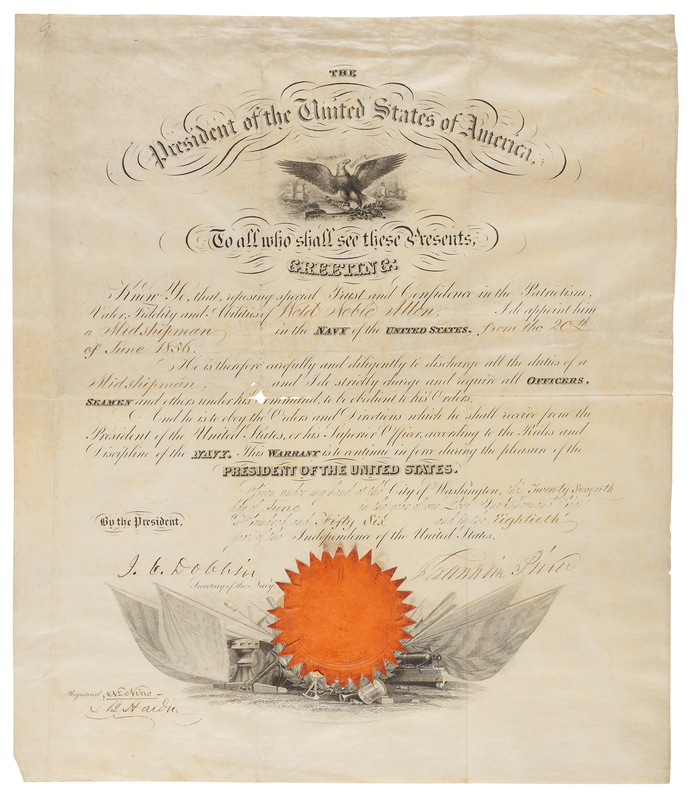 9
THE
President of the United States of America,
To all who shall see these Presents,
GREETING:
Know Ye, that, reposing special Trust and Confidence in the Patriotism,
Valor, Fidelity and Abilities of Weld Noble Allen. I do appoint him
a Midshipman in the NAVY of the UNITED STATES, from the 20th
of June 1856.
He is therefore carefully and diligently to discharge all the duties of a
Midshipman, and I do strictly charge and require all OFFICERS,
SEAMEN and others under his Command, to be obedient to his Orders.
And he is to obey the Orders and Directions which he shall receive from the
President of the United States, or his Superior Officer, according to the Rules and
Discipline of the NAVY. This WARRANT is to continue in force during the pleasure of the
PRESIDENT OF THE UNITED STATES.
Given under my hand at the City of Washington, this Twenty Seventh
day of June in the year of our Lord One Thousand
Hundred and Fifty Six and in the Eightieth
year of the Independence of the United States.
By the President,
J. C. Dobbin Franklin Pierce
Secretary of the Navy
Registered,